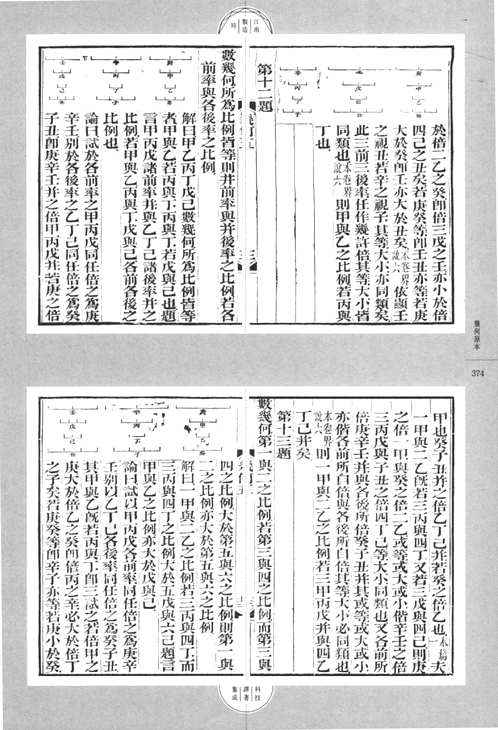 江南
製造
局
於倍二乙之癸卽倍三戊之壬亦小於倍
四己之丑矣若庚癸等卽壬丑亦等若庚
大於癸卽壬亦大於丑矣本卷界說六依顯壬
之視丑若辛之視子其等大小亦同類矣
此三前三後率任作幾許倍其等大小皆
同類也本卷界說六則甲與乙之比例若丙與
丁也
第十二題
數幾何所為比例皆等則幷前率與幷後率之比例若各
前率與各後率之比例
解曰甲乙丙丁戊己數幾何所為比例皆等
者甲與乙若丙與丁丙與丁若戊與己也題
言甲丙戊諸前率幷與乙丁己諸後率幷之
比例若甲與乙丙與丁戊與己各前各後之
比例也
論曰試於各前率之甲丙戊同任倍之為庚
辛壬別於各後率之乙丁己同任倍之為癸
子丑卽庚辛壬幷之倍甲丙戊幷若庚之倍
幾何原本
374
甲也癸子丑幷之倍乙丁己幷若癸之倍乙也夫
一甲與二乙旣若三丙與四丁又若三戊與四己則庚
之倍一甲與癸之倍二乙或等或大或小偕辛壬之倍
三丙戊與子丑之倍四丁己等大小同類也又各前所
倍庚辛壬幷與各後所倍癸子丑幷其或等或大或小
亦偕各前所自倍與各後所自倍其等大小必同類也
本卷界說六則一甲與二乙之比例若三甲丙戊幷與四乙
丁己幷矣
第十三題
數幾何第一與二之比例若第三與四之比例而第三與
四之比例大於第五與六之比例則第一與
二之比例亦大於第五與六之比例
解曰一甲與二乙之比例若三丙與四丁而
三丙與四丁之比例大於五戊與六己題言
甲與乙之比例亦大於戊與己
論曰試以甲丙戊各前率同任倍之為庚辛
壬別以乙丁己各後率同任倍之為癸子丑
其甲與乙旣若丙與丁卽三試之若倍甲之
庚大於倍乙之癸卽倍丙之辛必大於倍丁
之子矣若庚癸等卽辛子亦等若庚小於癸
科技
譯著
集成